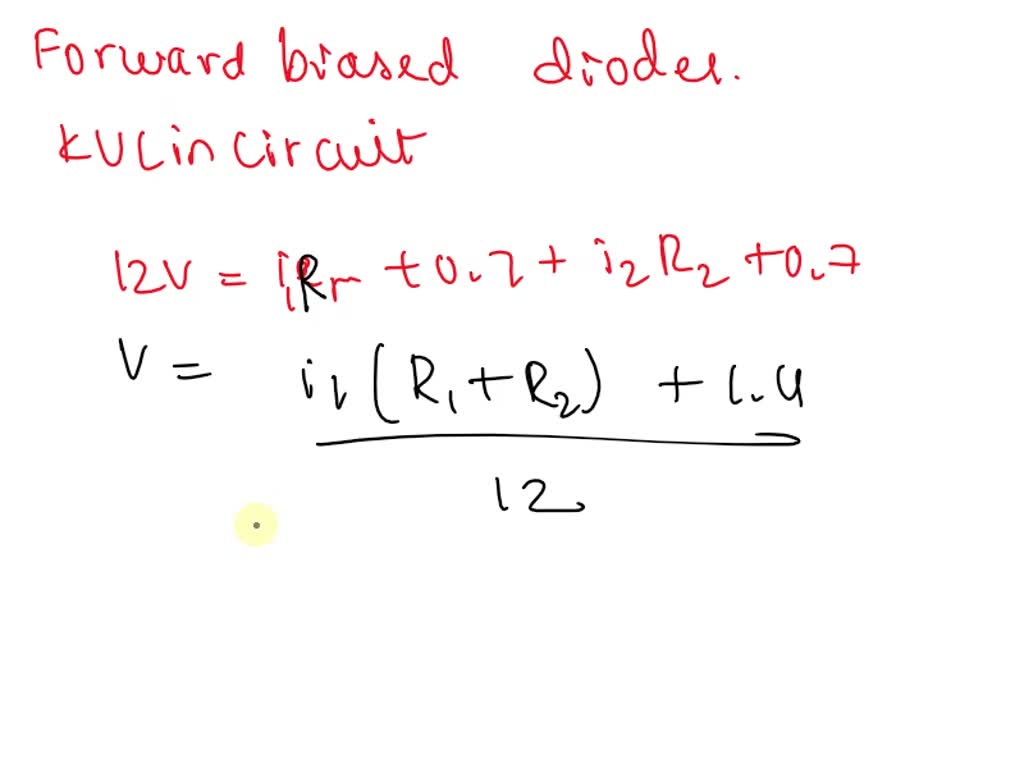 Forward biased diodes.
KVL in Circuit
12V = i₁R₁ + 0.7 + i₂R₂ + 0.7
V = i₁(R₁ + R₂) + 1.4
12